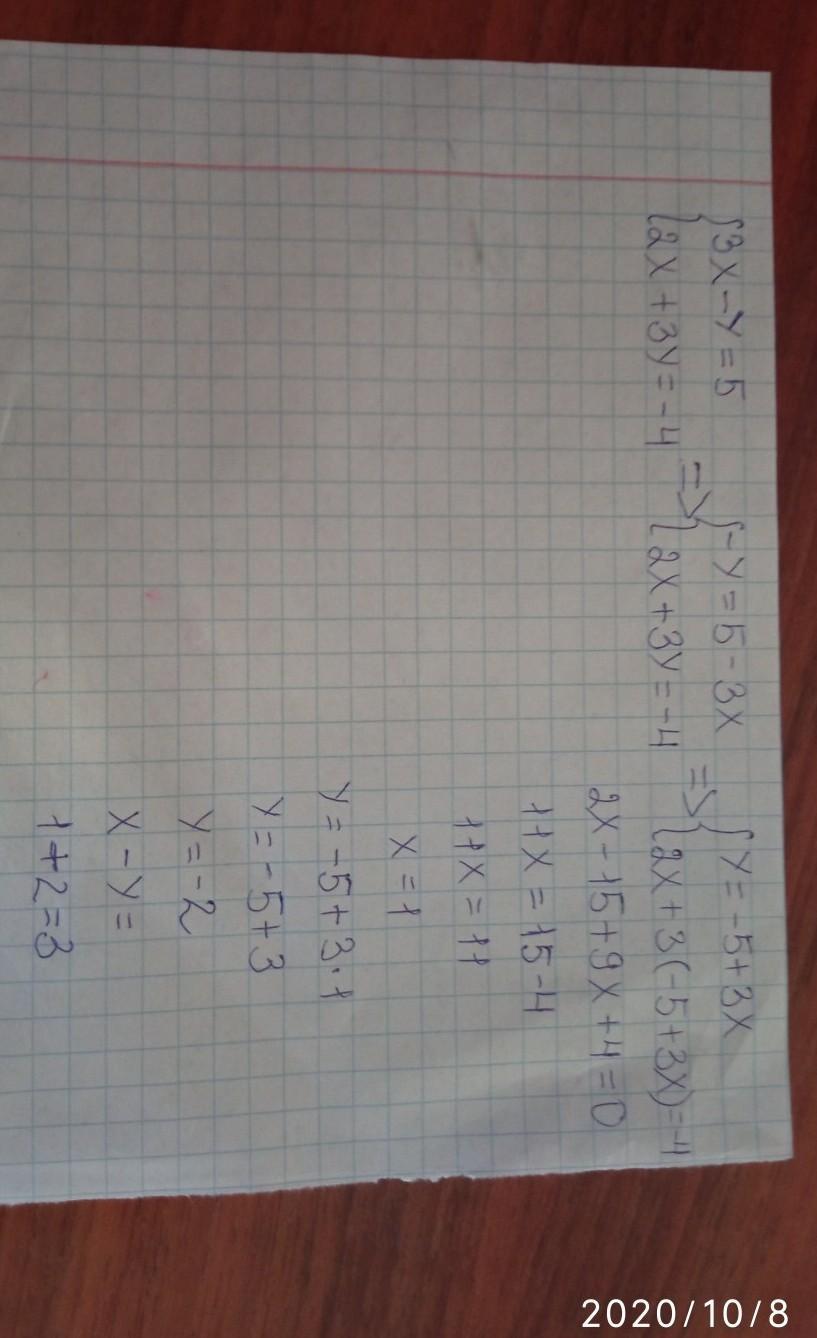 {3x-y=5 => {-y=5-3x => {y=-5+3x
{2x+3y=-4 {2x+3y=-4 {2x+3(-5+3x)=-4
2x-15+9x+4=0
11x=15-4
11x=11
x=1
y=-5+3·1
y=-5+3
y=-2
x-y=
1+2=3
2020/10/8